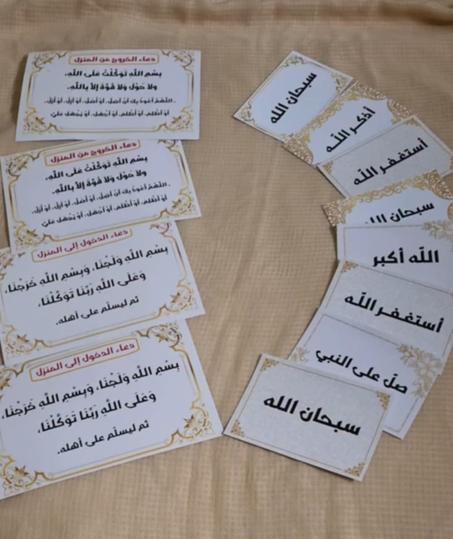 دعاء الخروج من المنزل
بِسْمِ اللَّهِ تَوَكَّلْتُ عَلَى اللَّهِ،
ولا حَوْلَ ولا قُوَّةَ إِلاَّ بِاللَّهِ.
اللَّهُمَّ أعوذُ بِكَ أنْ أضِلَّ، أوْ أُضَلَّ، أوْ أزِلَّ، أوْ أُزَلَّ،
أوْ أظلِمَ، أوْ أُظلَمَ، أوْ أجهَلَ، أوْ يُجهَلَ عليَّ
دعاء الخروج من المنزل
بِسْمِ اللَّهِ تَوَكَّلْتُ عَلَى اللَّهِ،
ولا حَوْلَ ولا قُوَّةَ إِلاَّ بِاللَّهِ.
اللَّهُمَّ أعوذُ بِكَ أنْ أضِلَّ، أوْ أُضَلَّ، أوْ أزِلَّ، أوْ أُزَلَّ،
أوْ أظلِمَ، أوْ أُظلَمَ، أوْ أجهَلَ، أوْ يُجهَلَ عليَّ
دعاء الدخول إلى المنزل
بِسْمِ اللَّهِ وَلَجْنَا، وَبِسْمِ اللَّهِ خَرَجْنَا،
وَعَلَى اللَّهِ رَبِّنَا تَوَكَّلْنَا،
ثم ليسلّم على أهله.
دعاء الدخول إلى المنزل
بِسْمِ اللَّهِ وَلَجْنَا، وَبِسْمِ اللَّهِ خَرَجْنَا،
وَعَلَى اللَّهِ رَبِّنَا تَوَكَّلْنَا،
ثم ليسلّم على أهله.
سبحان الله
أذكر الله
أستغفر الله
سبحان الله
الله أكبر
أستغفر الله
صلّ على النبي
سبحان الله